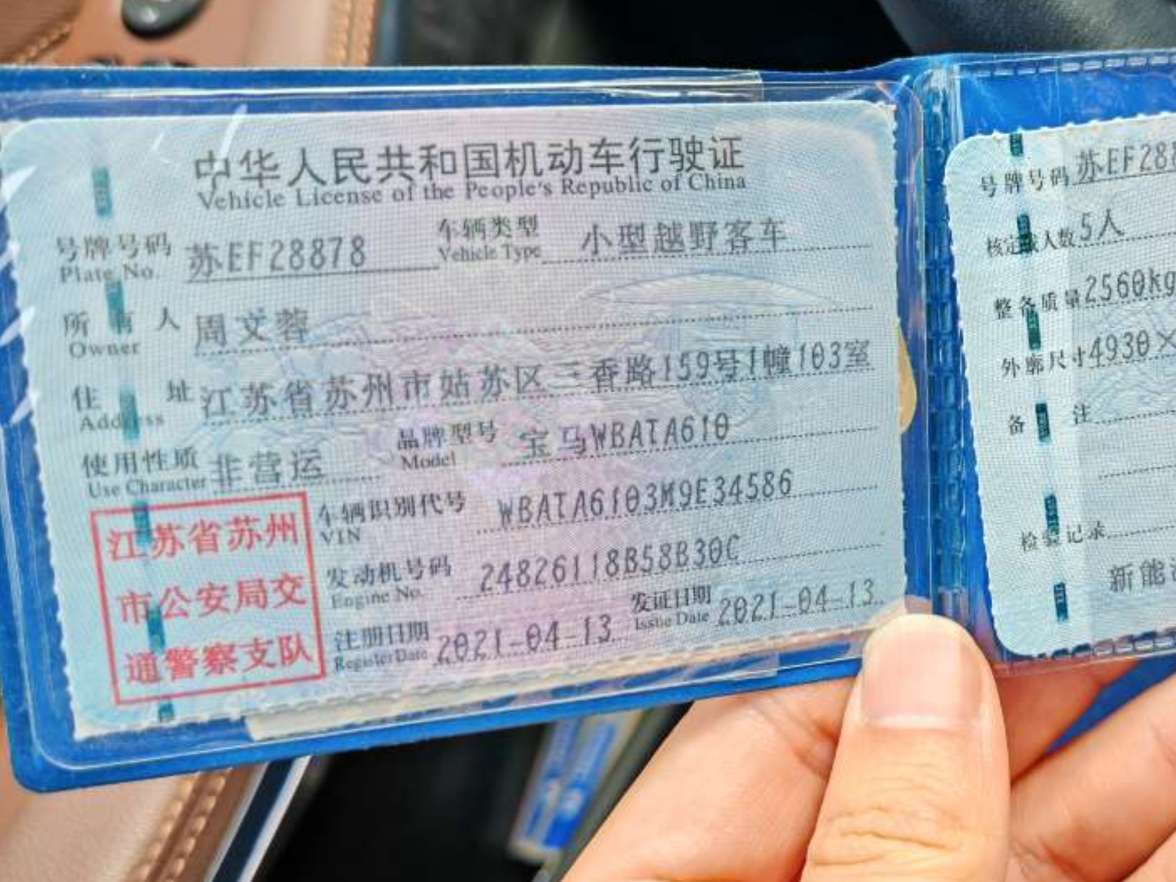 中华人民共和国机动车行驶证
Vehicle License of the People's Republic of China
号牌号码 苏EF28878 车辆类型 小型越野客车
Plate No. Vehicle Type
所有人 周文蓉
Owner
住址 江苏省苏州市姑苏区三香路159号1幢103室
Address
使用性质 非营运 品牌型号 宝马WBATA610
Use Character Model
车辆识别代号 WBATA6103M9E34586
VIN
发动机号码 24826118B58B30C
Engine No.
注册日期 2021-04-13 发证日期 2021-04-13
Register Date Issue Date
江苏省苏州
市公安局交
通警察支队
号牌号码 苏EF28
核定载人数 5人
整备质量 2560kg
外廓尺寸 4930×
备注
检验记录
新能